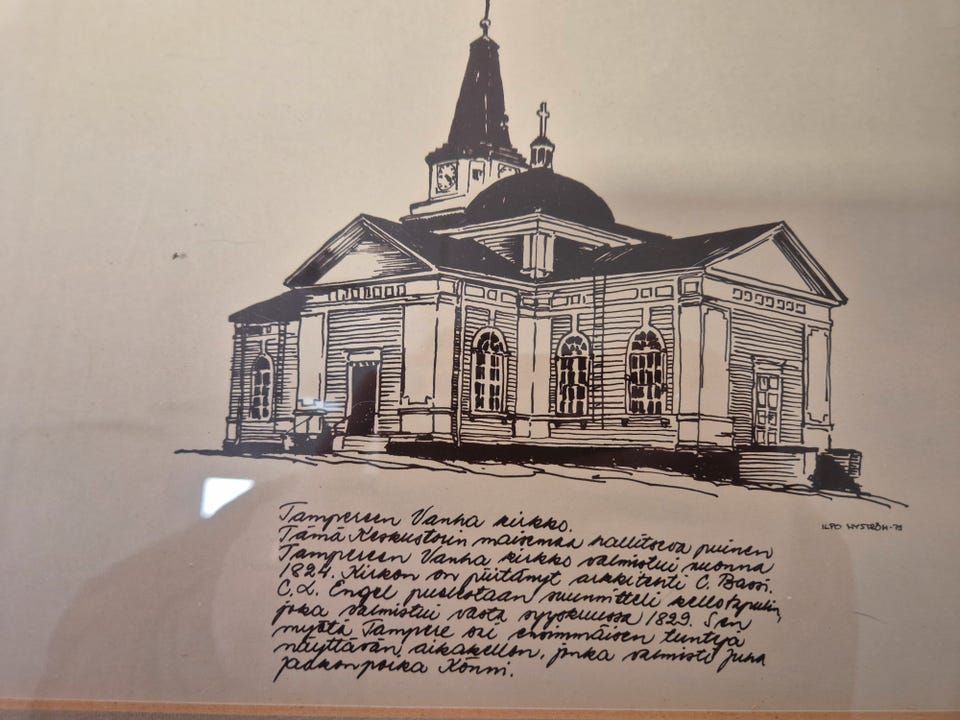 ILPO NYSTRÖM -75
Tampereen Vanha kirkko.
Tämä Keskustorin maisemaa hallitseva puinen
Tampereen Vanha kirkko valmistui vuonna
1824. Kirkon on piirtänyt arkkitehti C. Bassi.
C.L. Engel puolestaan suunnitteli kellotapulin,
joka valmistui vasta syyskuussa 1829. Sen
myötä Tampere sai ensimmäisen tunteja
näyttävän aikakellon, jonka valmisti Juha
Jaakonpoika Könni.